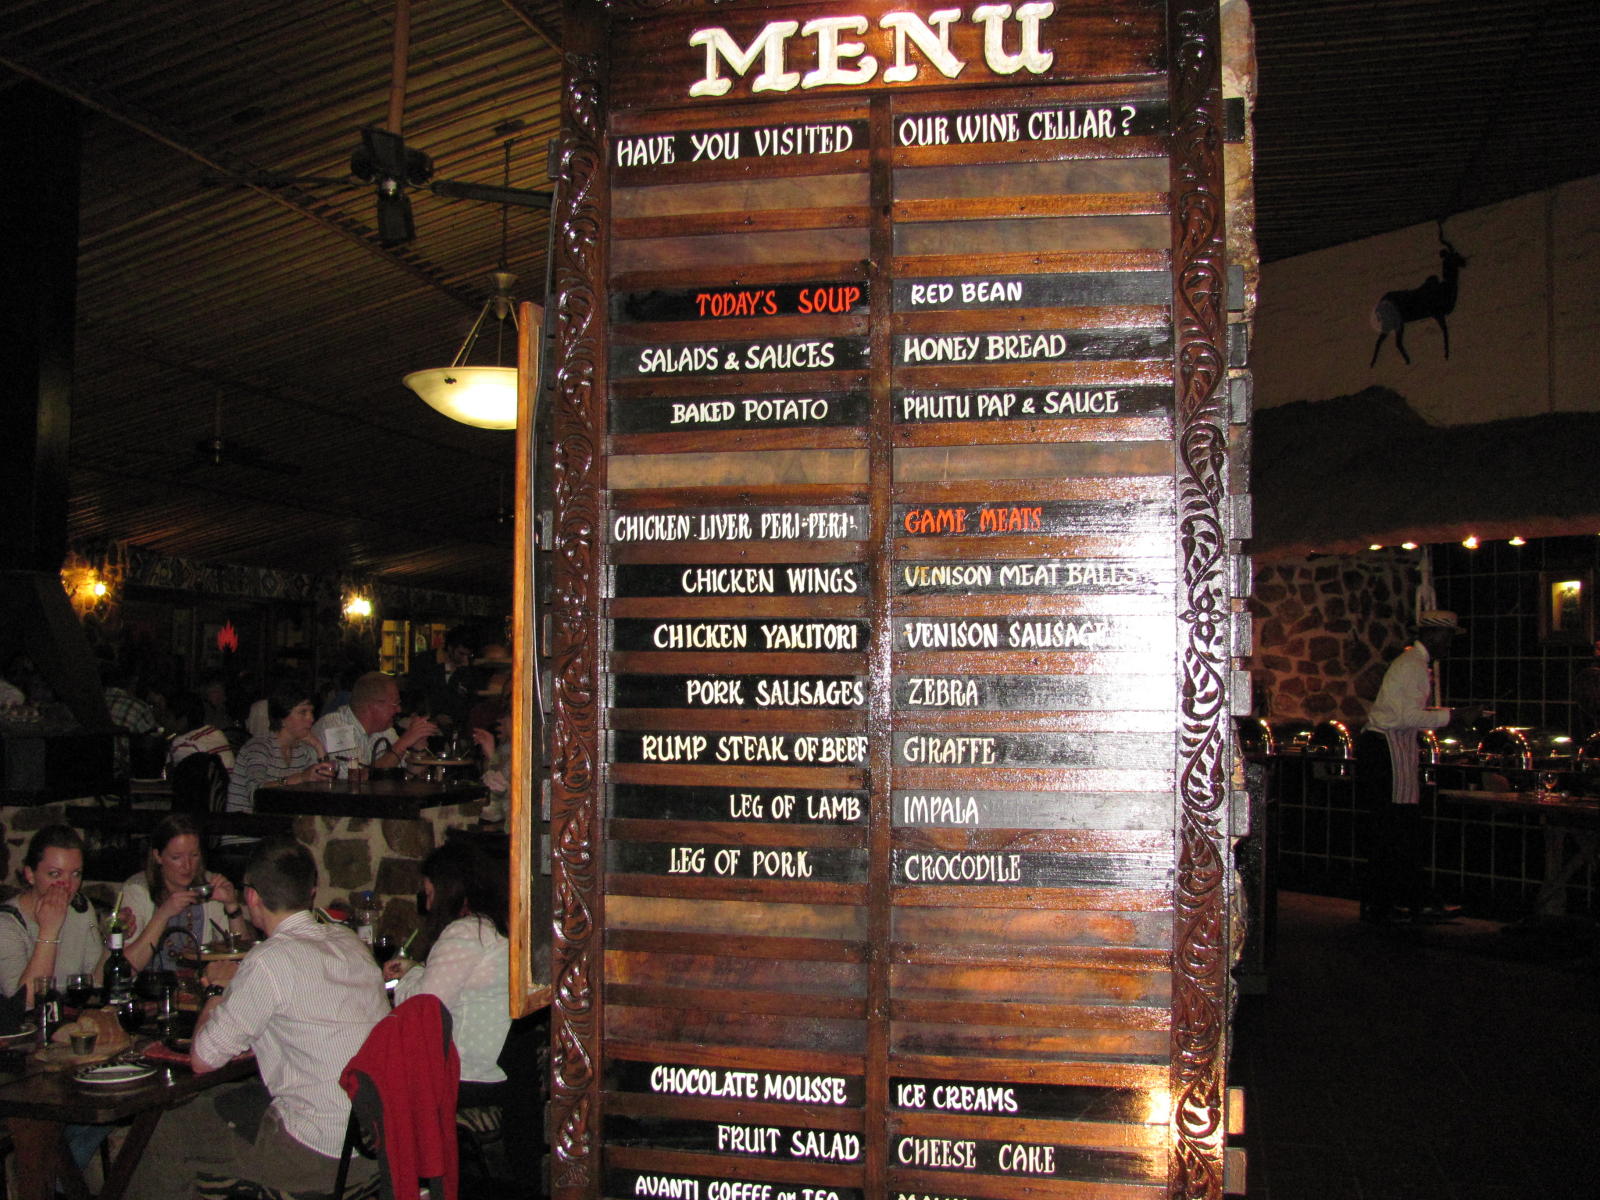 MENU
HAVE YOU VISITED OUR WINE CELLAR?
TODAY'S SOUP RED BEAN
SALADS & SAUCES HONEY BREAD
BAKED POTATO PHUTU PAP & SAUCE
CHICKEN LIVER PERI-PERI! GAME MEATS
CHICKEN WINGS VENISON MEAT BALLS
CHICKEN YAKITORI VENISON SAUSAGE
PORK SAUSAGES ZEBRA
RUMP STEAK OF BEEF GIRAFFE
LEG OF LAMB IMPALA
LEG OF PORK CROCODILE
CHOCOLATE MOUSSE ICE CREAMS
FRUIT SALAD CHEESE CAKE
AVANTI COFFEE or TEA